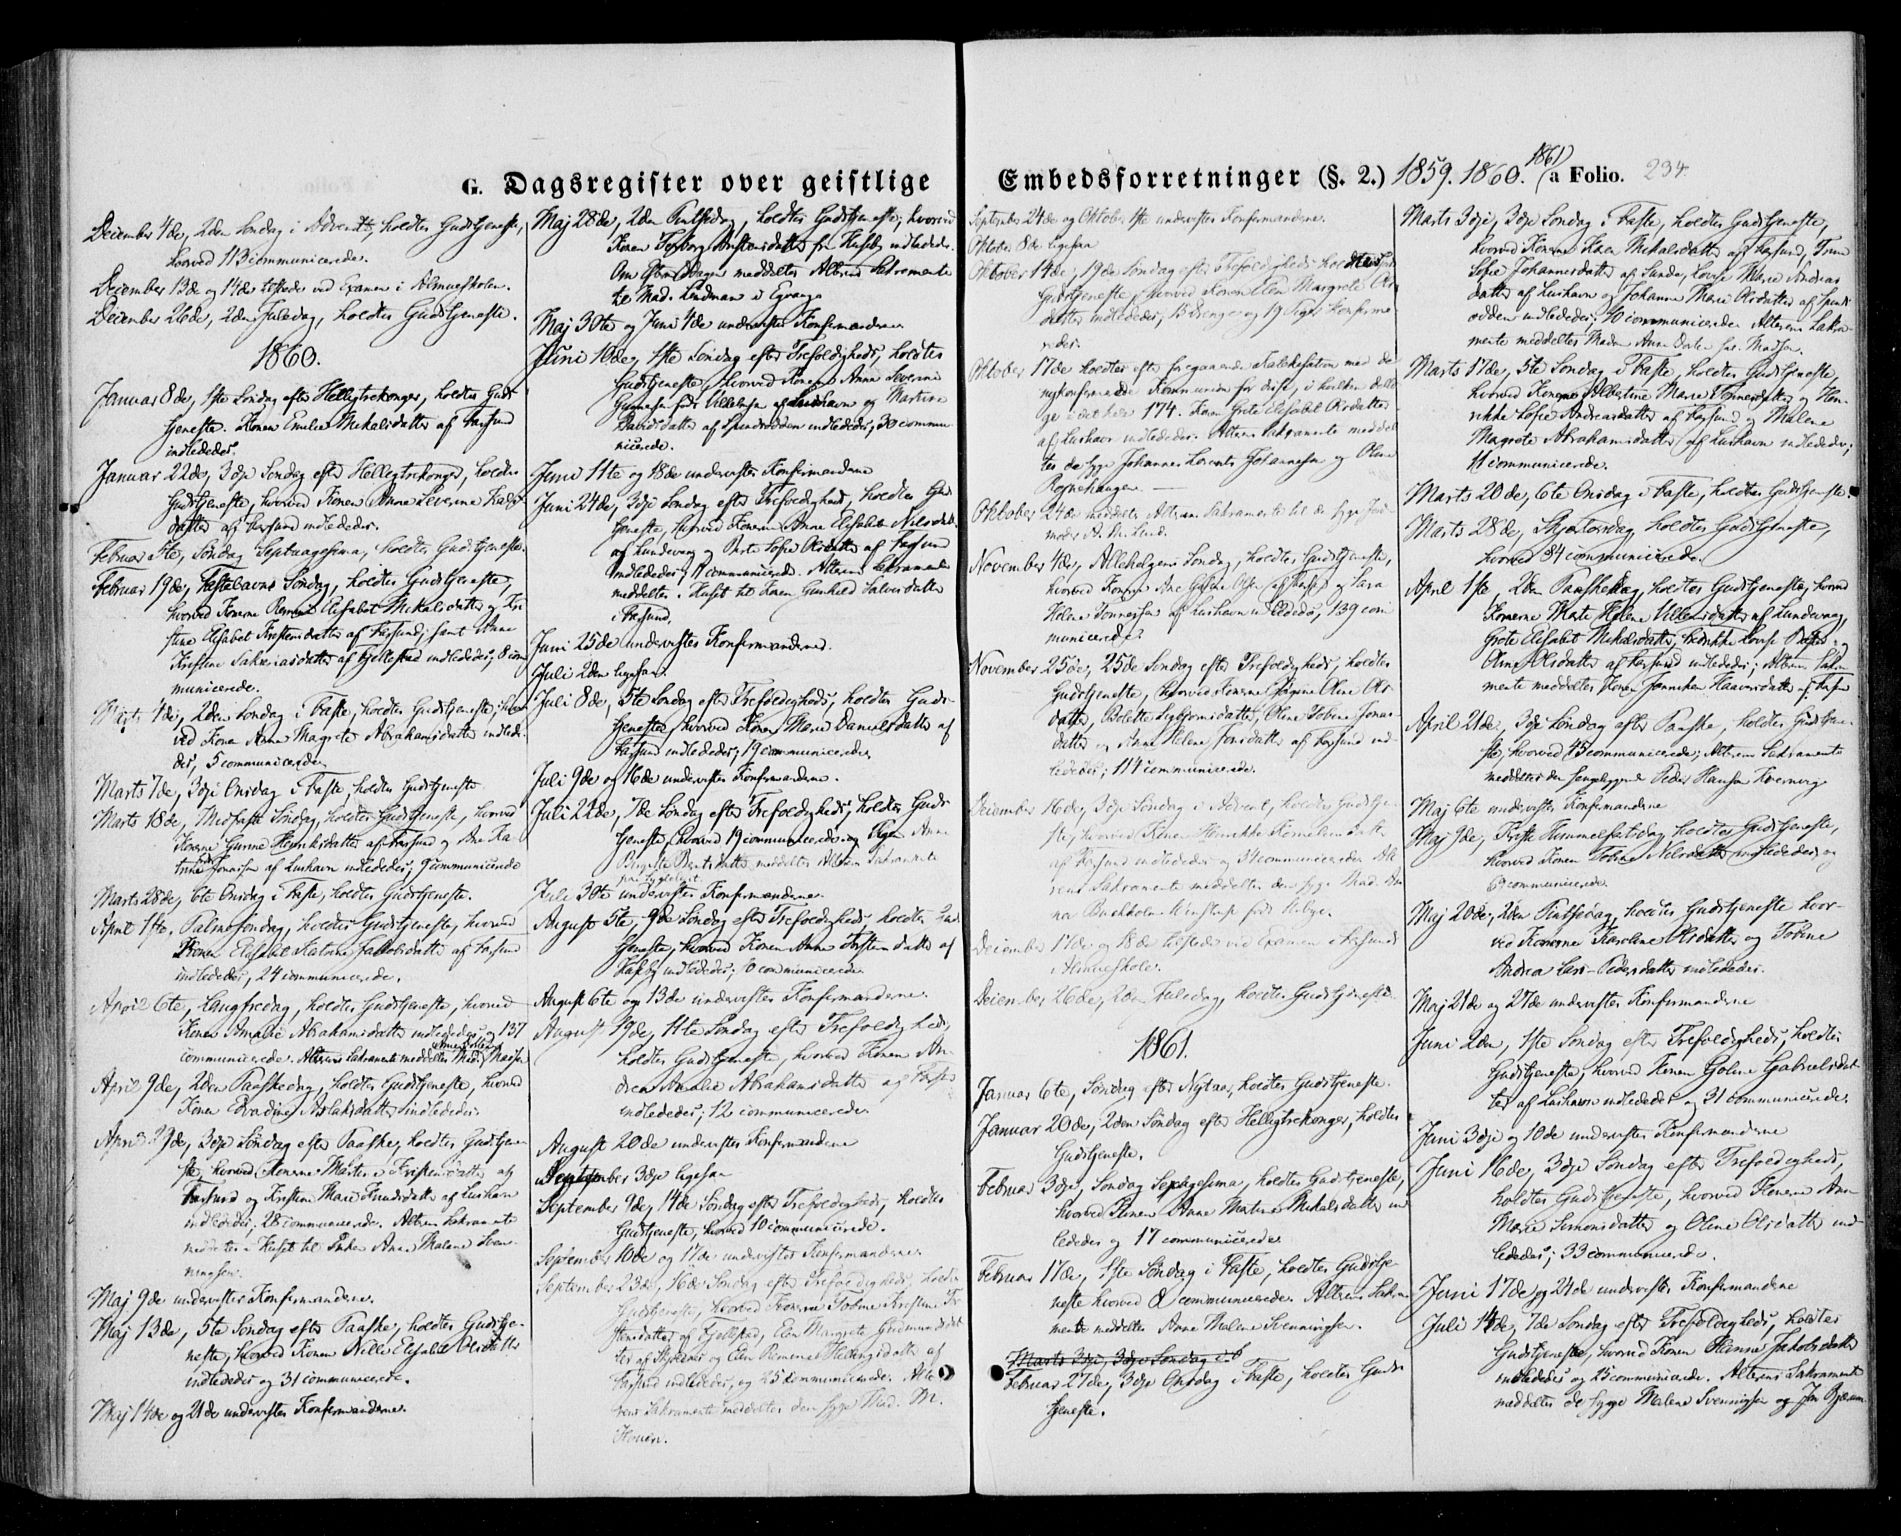 G. Dagsregister over geistlige
Embedsforretninger (§. 2.) 1859. 1860. 1861 a Folio. 234.
December 4de, 2den Søndag i Advent, holdtes Gudstjeneste,
hvorved 113 communicerede.
December 13de og 14de tilstede ved Examen i Almueskolen.
December 26de, 2den Juledag, holdtes Gudstjeneste.
1860.
Januar 8de, 1ste Søndag efter Helligtrekonger, holdtes Guds
tjeneste. Konen Emilie Mikalsdatter af Farsund
indlededes.
Januar 22de, 3dje Søndag efter Helligtrekonger, holdtes
Gudstjeneste, hvorved Konen Anne Severine
datter af Farsund indlededes.
Februar 5te, Søndag Septuagesima, holdtes Gudstjeneste.
Februar 19de, Fastelavns Søndag, holdtes Gudstjeneste,
hvorved Konerne Elisabet Mikalsdatter og
stine Elisabet Kristensdatter af Farsund, samt Anne
Kristine Sakariasdatter af Fjellestad indlededes, 8 com
municerede.
Marts 4de, 2den Søndag i Faste, holdtes Gudstjeneste, hvor
ved Konen Anne Magrete Abrahamsdatter indlede
des, 5 communicerede.
Marts 7de, 3dje Onsdag i Faste, holdtes Gudstjeneste
Marts 18de, Midfaste Søndag, holdtes Gudstjeneste, hvorved
Konerne Gunne Henriksdatter af Farsund og Ane Ka
trine Jonassen af Lushavn indlededes; 9 communicerede
Marts 28de, 6te Onsdag i Faste, holdtes Gudstjeneste.
April 1ste, Palmesøndag, holdtes Gudstjeneste, hvorved
Konen Elisabet Katrine Jakobsdatter af Farsund
indlededes, 24 communicerede.
April 6te, Langfredag, holdtes Gudstjeneste, hvorved
Konen Amalie Abrahamsdatter indlededes og 137
communicerede. Alterens Sakramente meddeltes Mad.
April 9de, 2den Paaskedag, holdtes Gudstjeneste, hvorved
Konen Edvardine Aslaksdatter indlededes.
April 29de, 3dje Søndag efter Paaske, holdtes Gudstjene
ste, hvorved Konerne Martine Kristensdatter af
Farsund og Kirstine Marie Knudsdatter af Lushavn
indlededes; 28 communicerede. Alterens Sakramente
meddeltes i Huset til Enken Anne Malene Sven
ningsen.
Maj 9de undervistes Konfirmanderne.
Maj 13de, 5te Søndag efter Paaske, holdtes Gudstje-
neste, hvorved Konen Nille Elisabet Olsdatter
indlededes og 31 communicerede.
Maj 14de og 21de undervistes Konfirmanderne.
Maj 28de, 2den Pintsedag, holdtes Gudstjeneste, hvorved
Konen Torborg Kristensdatter fra Huseby indlededes.
Om Eftermiddagen meddeltes Alterens Sakramente
til Mad. Lindman i Egvaag.
Maj 30te og Juni 4de undervistes Konfirmanderne
Juni 10de, 1ste Søndag efter Trefoldigheds, holdtes
Gudstjeneste, hvorved Konerne Anne Severine
Gunnesen født af Lushavn og Martine
Berntsdatter af Spindsodden indlededes; 30 commu-
nicerede.
Juni 11te og 18de undervistes Konfirmanderne
Juni 24de, 3dje Søndag efter Trefoldigheds, holdtes Guds
tjeneste, hvorved Konerne Anne Elisabet Nilsdatter
af Lundevaag og Berte Sofie Olsdatter af Farsund
indlededes; communicerede. Alterens Sakramente
meddeltes i Huset til Konen Gunhild Salvesdatter
i Farsund.
Juni 25de undervistes Konfirmanderne.
Juli 2den ligesaa.
Juli 8de, 5te Søndag efter Trefoldigheds, holdtes Guds-
tjeneste, hvorved Konen Marie Danielsdatter af
Farsund indlededes; 19 communicerede.
Juli 9de og 16de undervistes Konfirmanderne.
Juli 22de, 7de Søndag efter Trefoldigheds, holdtes Guds
tjeneste, hvorved 19 communicerede; og Pigen Anne
Birgitte Berntsdatter meddeltes Alterens Sakramente
paa Sygeleiet.
Juli 30te undervistes Konfirmanderne.
August 5te, 9de Søndag efter Trefoldigheds, holdtes Guds
tjeneste, hvorved Konen Anne Kristensdatter af
indlededes; 10 communicerede.
August 6te og 13de undervistes Konfirmanderne.
August 19de, 11te Søndag efter Trefoldigheds,
holdtes Gudstjeneste, hvorved Konen An-
drea Amalie Abrahamsdatter af Farsund
indlededes; 12 communicerede.
August 20de undervistes Konfirmanderne
September 3dje ligesaa
September 9de, 14de Søndag efter Trefoldigheds, holdtes
Gudstjeneste, hvorved 10 communicerede.
September 10de og 17de undervistes Konfirmanderne.
September 23de, 16de Søndag efter Trefoldigheds, holdtes
Gudstjeneste, hvorved Konerne Tobine Kristine
stensdatter af Fjellestad, Elen Margrete Gudmundsdat
ter af og Elen Helmigsdatter af
Farsund indlededes, og 25 communicerede. Alte
rens Sakramente meddeltes den syge Mad. M.
September 24de og Oktober 1ste undervistes Konfirmanderne.
Oktober 8de ligesaa
Oktober 14de, 19de Søndag efter Trefoldigheds holdtes
Gudstjeneste, hvorved Konen Elen Margrete Ols
datter indlededes; 13 Drenge og 19 Piger konfirme
redes.
Oktober 17de holdtes efter foregaaende Katekisation med de
nykonfirmerede Kommunion for disse, i hvilken deltog
ge i det hele 174. Konen Grete Elisabet Olsdatter
af Lushavn indlededes. Alterens Sakramente meddel
tes de syge Johannes Lorents Johannesen og Oline
Rognehaugen.
Oktober 24de meddeltes Alterens Sakramente til de syge Jord
moder Lund.
November 4de, Allehelgens Søndag, holdtes Gudstjeneste,
hvorved Konerne Ane Olsen af Farsund og Sara
Helene Tønnessen af Lushavn indlededes; 139 com
municerede.
November 25de, 25de Søndag efter Trefoldigheds, holdtes
Gudstjeneste, hvorved Konerne Oline Ols
datter, Bolette Sigbjørnsdatter, Oline Tobine Jonas
datter og Anne Helene Jonsdatter af Farsund ind
lededes; 114 communicerede.
December 16de, 3dje Søndag i Advent, holdtes Gudstjene
ste, hvorved Konen Henrikke Kornelius datter
af Farsund indlededes og 34 communicerede. Alte
rens Sakramente meddeltes den syge Mad. An
na Buchholm Winstrup født Helvig.
December 17de og 18de tilstede ved Examen i Farsunds
Almueskole.
December 26de, 2den Juledag, holdtes Gudstjeneste.
1861.
Januar 6te, Søndag efter Nytaar, holdtes Gudstjeneste.
Januar 20de, 2den Søndag efter Helligtrekonger, holdtes
Gudstjeneste.
Februar 3dje, Søndag Sexagesima, holdtes Gudstjeneste,
hvorved Konen Anne Matea Mikalsdatter ind
lededes og 17 communicerede.
Februar 17de, 1ste Søndag i Faste, holdtes Gudstje
neste hvorved 8 communicerede. Alterens Sakra
mente meddeltes Anne Malene Svenningsen.
Marts 3dje, 3dje Søndag i F
Februar 27de, 3dje Onsdag i Faste, holdtes Guds
tjeneste.
Marts 3dje, 3dje Søndag i Faste, holdtes Gudstjeneste,
hvorved Konerne Elen Mikalsdatter af Farsund, Trine
Sofie Johannesdatter af Sunde, Lovise Marie Andreas
datter af Lushavn og Johanne Marie Olsdatter af Spinds
odden indlededes; 10 communicerede. Alterens Sakra-
mente meddeltes Madm. Anne Sal. Madsen.
Marts 17de, 5te Søndag i Faste, holdtes Gudstjeneste,
hvorved Konerne Albertine Marie Tønnesdatter og Hen-
rikke Sofie Andreasdatter af Farsund og Malene
Magrete Abrahamsdatter af Lushavn indlededes;
11 communicerede.
Marts 20de, 6te Onsdag i Faste, holdtes Gudstjeneste
Marts 28de, Skjærtorsdag, holdtes Gudstjeneste,
hvorved 84 communicerede.
April 1ste, 2den Paaskedag, holdtes Gudstjeneste, hvorved
Konerne Marte Helene Villumsdatter af Lundevaag,
Grete Elisabet Mikalsdatter, Lovise
Oline Olsdatter af Farsund indlededes; Alterens Sakra
mente meddeltes Konen Janniken Haavorsdatter af Farsund
April 21de, 3dje Søndag efter Paaske, holdtes Gudstjene-
ste, hvorved 45 communicerede; Alterens Sakramente
meddeltes den sengeliggende Peder Hansen
Maj 6te undervistes Konfirmanderne
Maj 9de, Kristi Himmelfartsdag, holdtes Gudstjeneste,
hvorved Konen Tobine Nilsdatter indlededes og
69 communicerede.
Maj 20de, 2den Pintsedag, holdtes Gudstjeneste hvor-
ved Konerne Karoline Olsdatter og Tobine
Andrea Lars-Pedersdatter indlededes.
Maj 21de og 27de undervistes Konfirmanderne
Juni 2den, 1ste Søndag efter Trefoldigheds, holdtes
Gudstjeneste, hvorved Konen Goline Gabrielsdat
ter af Lushavn indlededes og 31 communicerede.
Juni 3dje og 10de undervistes Konfirmanderne
Juni 16de, 3dje Søndag efter Trefoldigheds,
holdtes Gudstjeneste, hvorved Konerne Ane
Marie Simonsdatter og Oline Olsdatter ind-
lededes; 33 communicerede.
Juni 17de og 24de undervistes Konfirmanderne
Juli 14de, 7de Søndag efter Trefoldigheds, holdtes
Gudstjeneste, hvorved Konen Hanne Jakobsdatter
indlededes og 25 communicerede. Alterens Sakramente
meddeltes de syge Malene Svenningsen og Jens